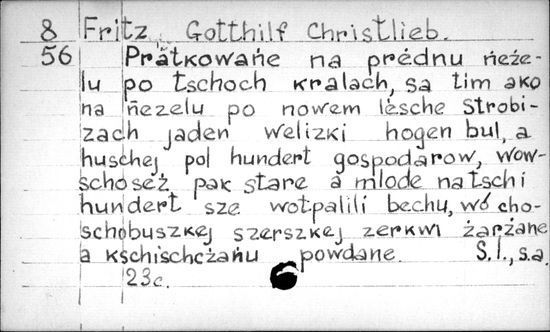 8 Fritz, Gotthilf Christlieb.
56 Prätkowańe na prědnu ńeźe-
lu po tschoch kralach, sa tim ako
na ńezelu po nowem lěsche Strobi-
zach jaden welizki hogen bul, a
huschej pol hundert gospodarow, wow-
schosež pak stare a mlode na tschi
hundert sze wotpalili bechu, wó cho-
schobuszkej szerszkej zerkwi žaržane
a kschischcžańu powdane. S.l., s.a.
23c.